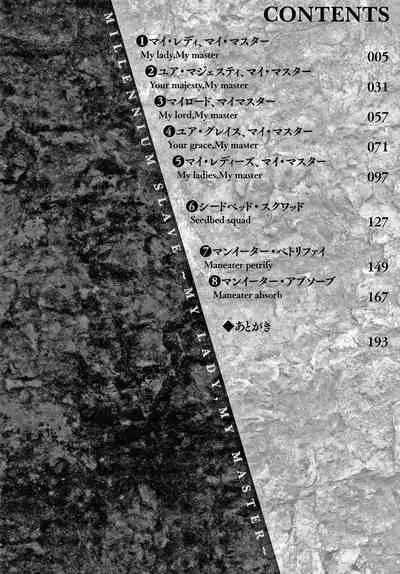 CONTENTS
❶マイ・レディ、マイ・マスター
My lady,My master
005
❷ユア・マジェスティ、マイ・マスター
Your majesty,My master
031
❸マイロード、マイマスター
My lord,My master
057
❹ユア・グレイス、マイ・マスター
Your grace,My master
071
❺マイ・レディーズ、マイ・マスター
My ladies,My master
097
❻シードベッド・スクワッド
Seedbed squad
127
❼マンイーター・ペトリファイ
Maneater petrify
149
❽マンイーター・アブソーブ
Maneater absorb
167
◆あとがき
193
MILLENNIUM SLAVE －MY LADY,MY MASTER－